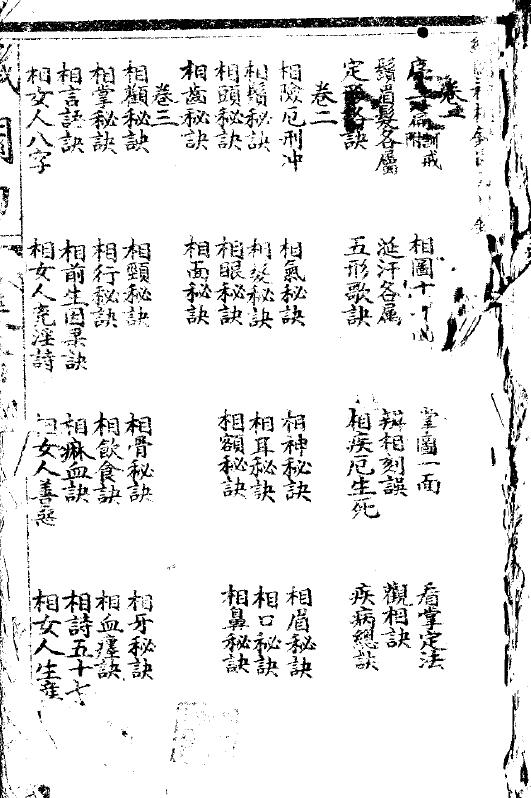 卷一
序 相圖十 掌圖一面 看掌定法
鬚眉髮各屬 涎汗各属 辨相刻誤 觀相訣
定 訣 五形歌訣 相疾厄生死 疾病總訣
卷二
相險厄刑冲 相氣秘訣 相神秘訣 相眉秘訣
相鬚秘訣 相髮秘訣 相耳秘訣 相口秘訣
相頭秘訣 相眼秘訣 相額秘訣 相鼻秘訣
相齒秘訣 相面秘訣
卷三
相顴秘訣 相頸秘訣 相骨秘訣 相牙秘訣
相掌秘訣 相行秘訣 相飲食訣 相血 訣
相言語訣 相前生因果訣 相痳血訣 相詩五十七
相女人八字 相女人 淫詩 女人善惡 相女人生産